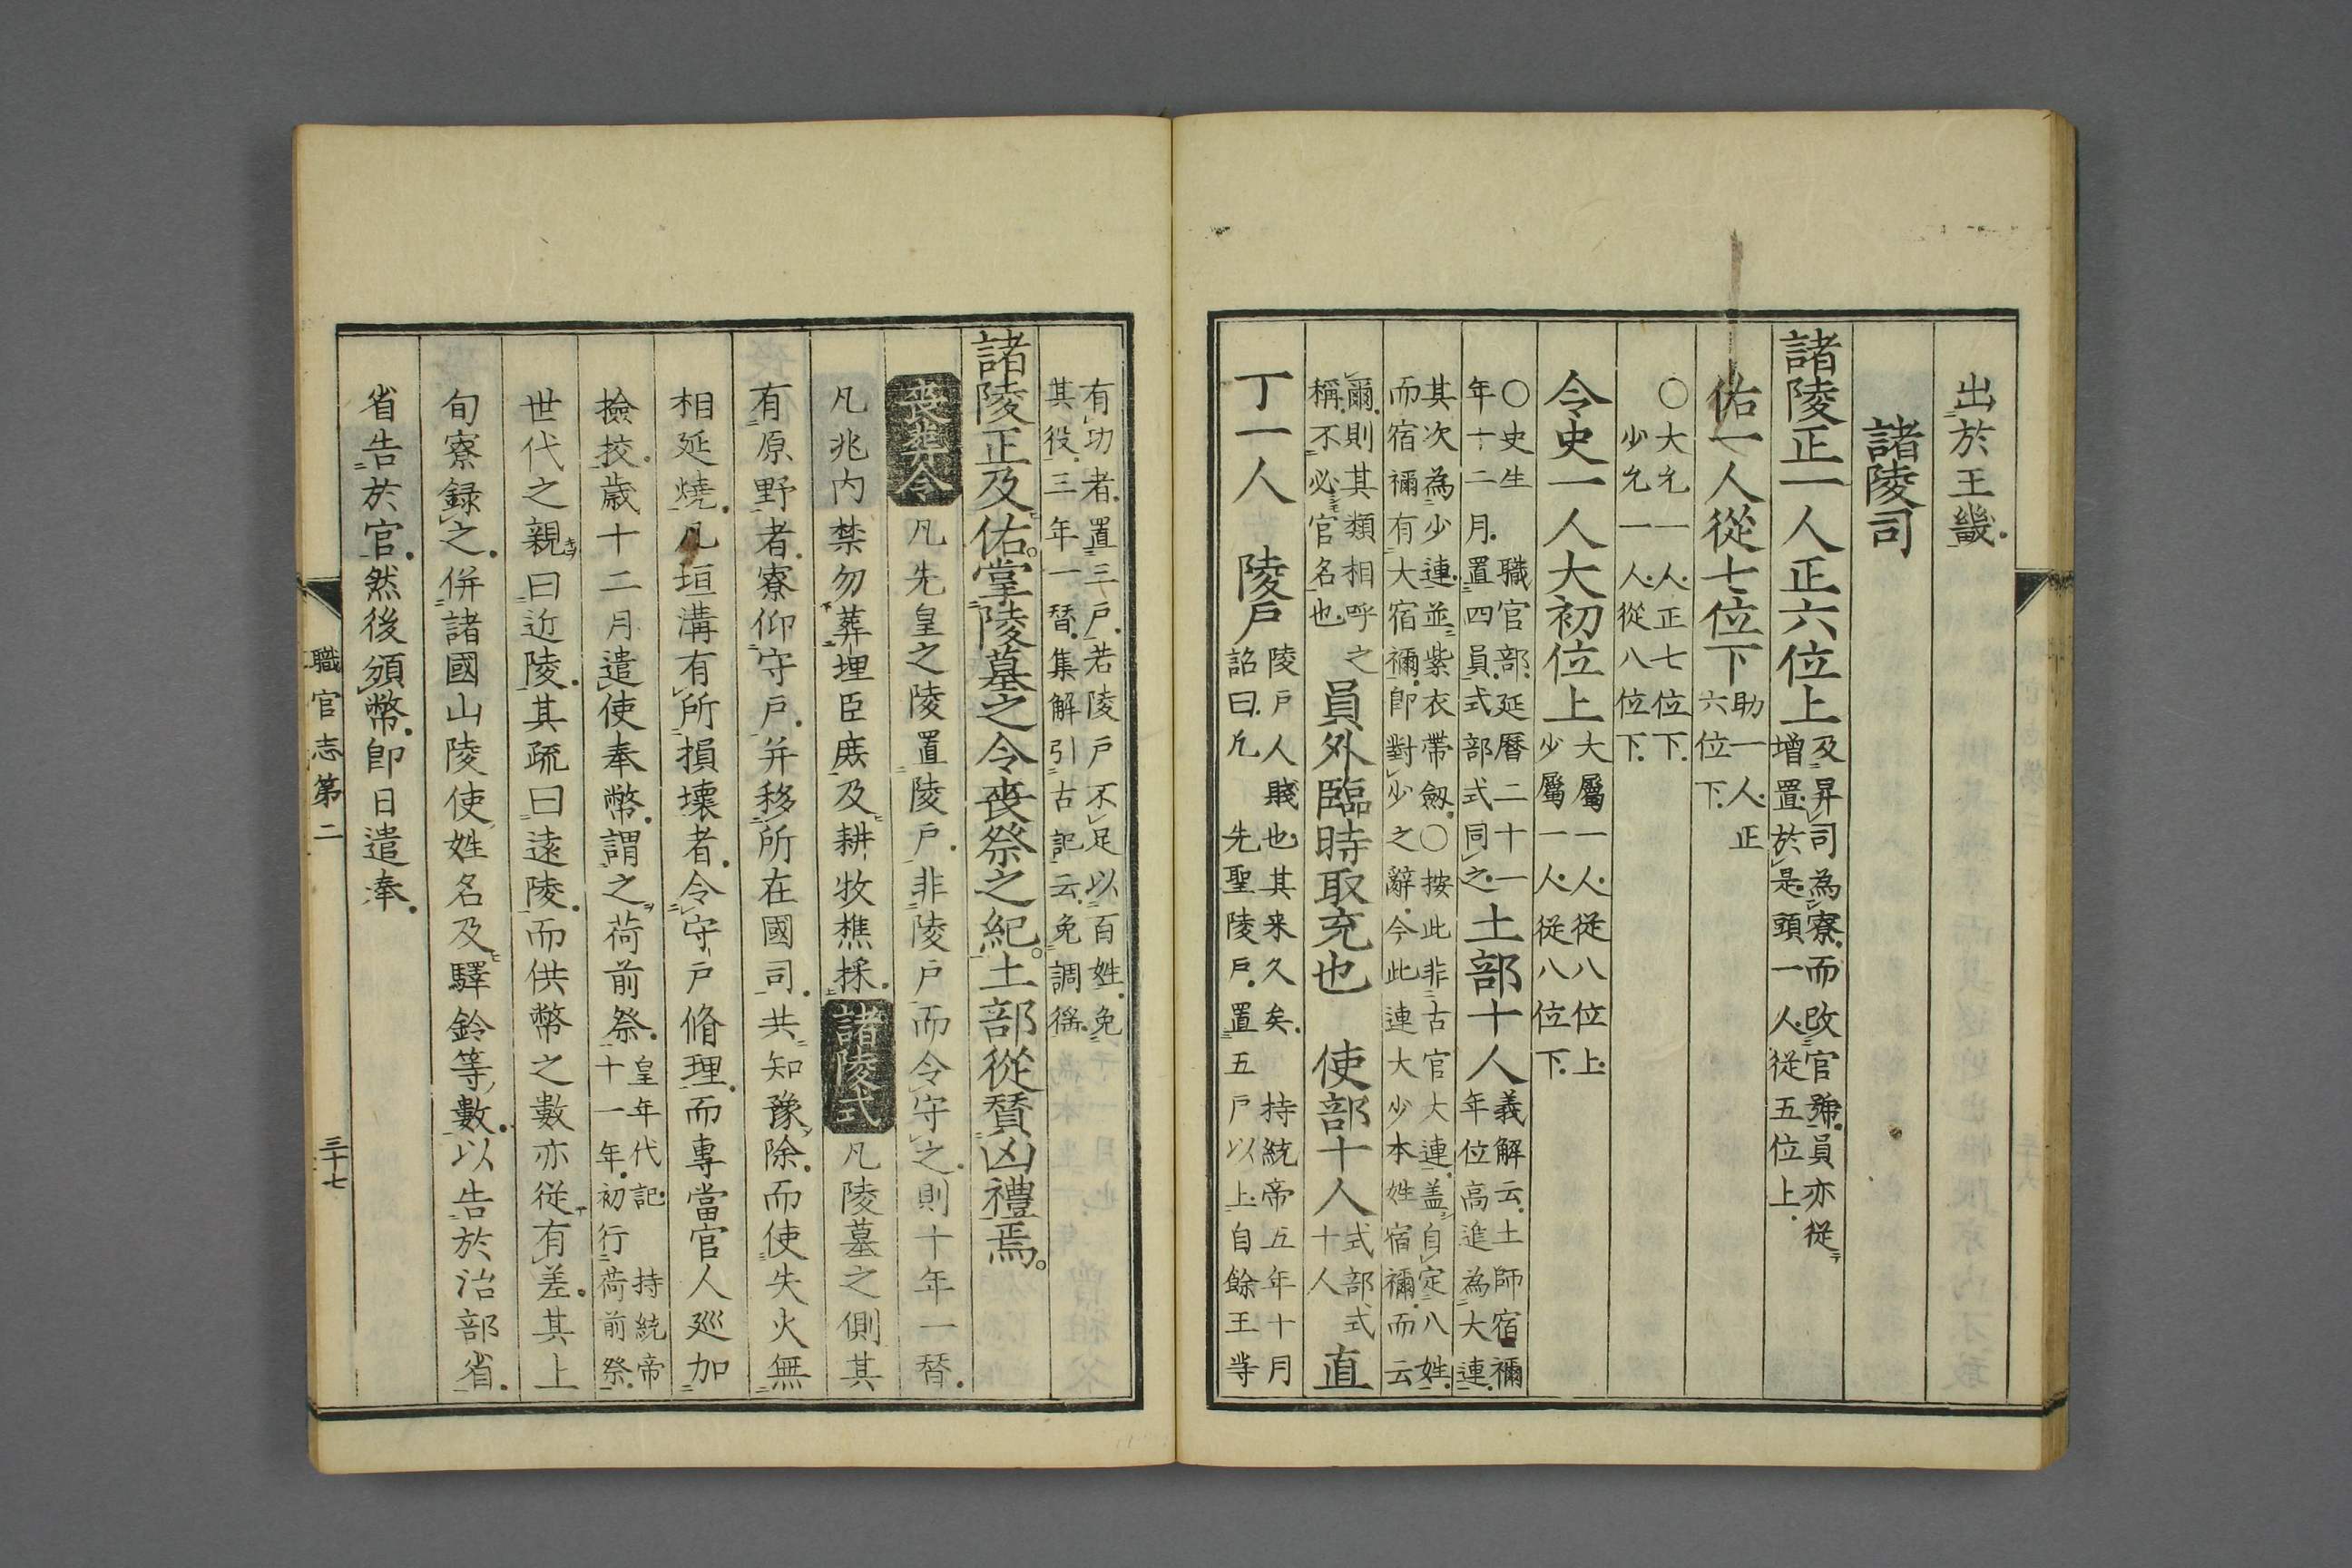 出於王畿
諸陵司
諸陵正一人正六位上及昇司為寮而改官號員亦從增置於是頭一人從五位上
佑一人從七位下助一人正六位下
○大允一人正七位下少允一人從八位下
令史一人大初位上大屬一人從八位上少屬一人從八位下
○史生職官部延曆二十一年十二月置四員式部式同之土部十人義解云土師宿禰年位高進為大連
其次為少連並紫衣帶劔○按此非古官大連蓋自定八姓而宿禰有大宿禰即對少之辭今此連大少本姓宿禰而云
爾則其類相呼之稱不必官名也員外臨時取充也使部十人式部式十人直
丁一人陵戶陵戶人賤也其来久矣持統帝五年十月詔曰凡先聖陵戶置五戶以上自餘王等
有功者置三戶若陵戶不足以百姓免其役三年一替集解引古記云免調徭
諸陵正及佑掌陵墓之令喪祭之紀土部從賛凶禮焉
喪葬令凡先皇之陵置陵戶非陵戶而令守之則十年一替
凡兆内禁勿葬埋臣庶及耕牧樵採諸陵式凡陵墓之側其
有原野者寮仰守戶并移所在國司共知豫除而使失火無
相延燒凡垣溝有所損壞者令守戶脩理而專當官人巡加
撿挍歲十二月遣使奉幣謂之荷前祭皇年代記持統帝十一年初行荷前祭
世代之親曰近陵其疏曰遠陵而供幣之數亦從有差其上
旬寮録之併諸國山陵使姓名及驛鈴等數以告於治部省
省告於官然後頒幣即日遣奉
職官志第二
三十七